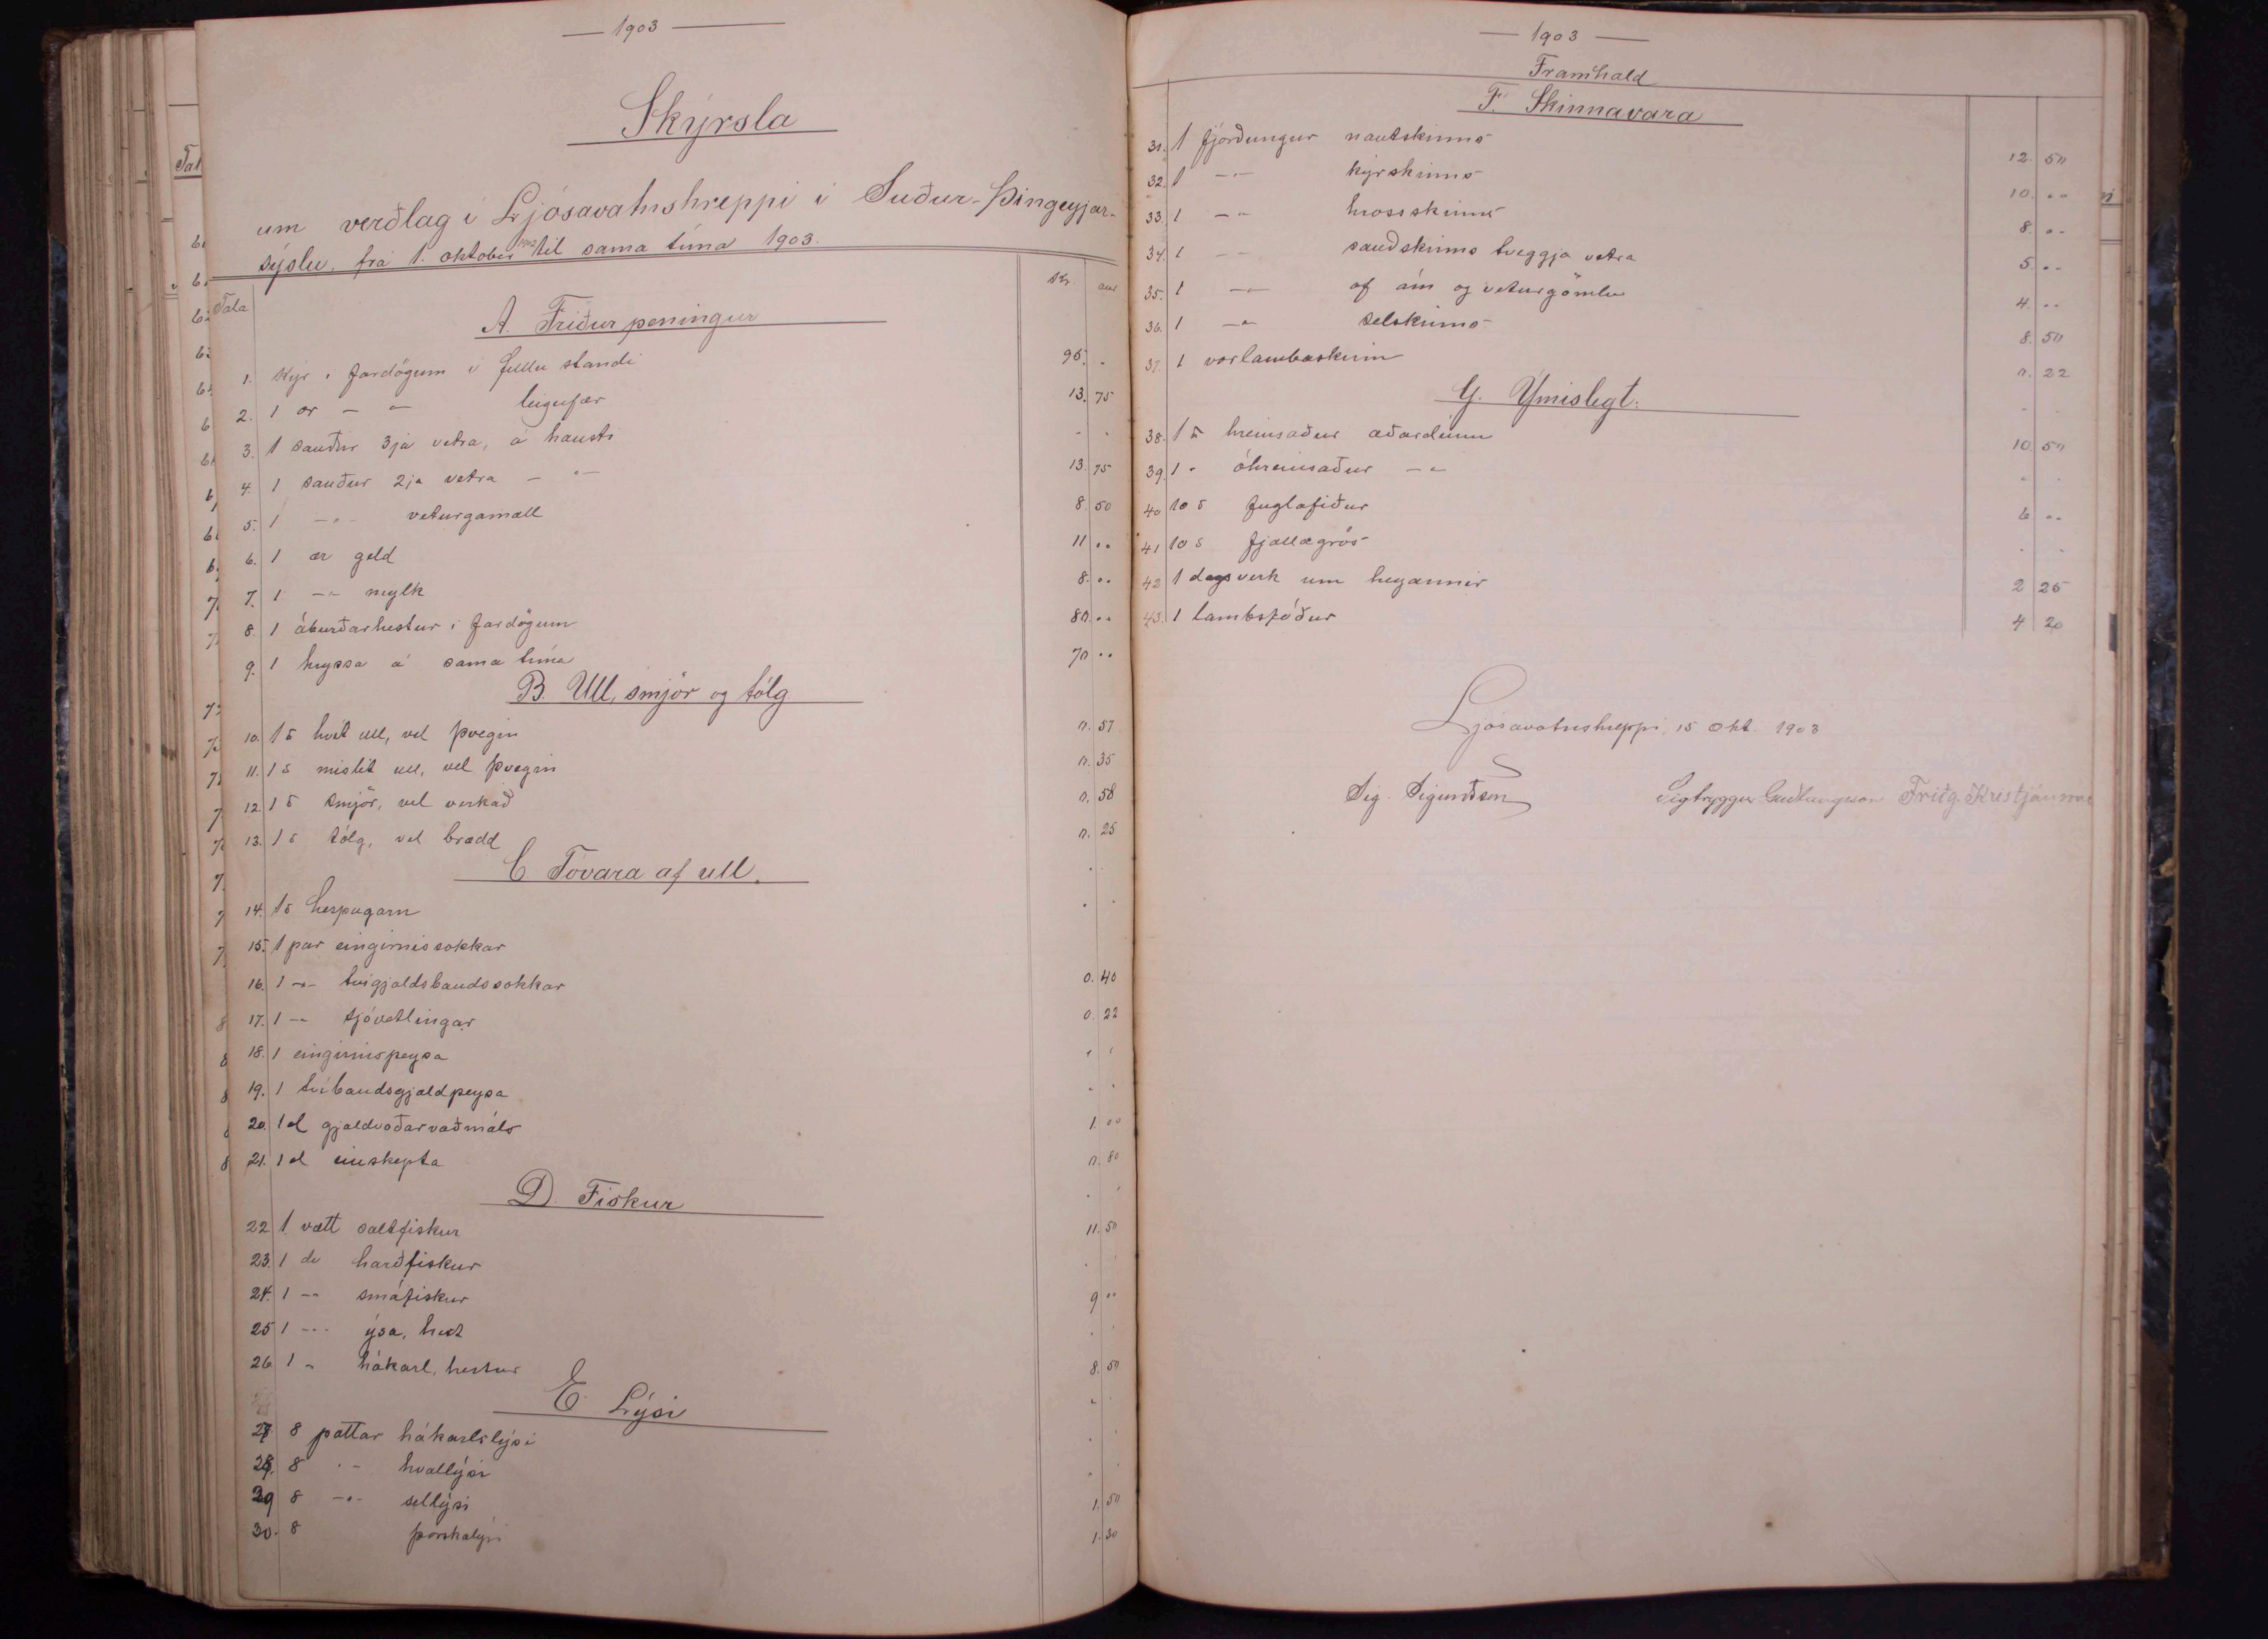 — 1903 —
Skýrsla
um verðlag í Ljósavatnshreppi í Suður-Þingeyjar-
sýslu, frá 1. oktober 1902 til sama tíma 1903.
Tala Kr. aur
A. Fríður peningur
1. Kýr í fardögum í fullu standi 95. "
2. 1 ær — " — leigufær 13. 75
3. 1 sauður 3já vetra, á hausti - -
4. 1 sauður 2ja vetra — " — 13. 75
5. 1 — " — veturgamall 8. 50
6. 1 ær geld 11 ..
7. 1 — " — mylk 8. ..
8. 1 áburðarhestur í fardögum 80. ..
9. 1 hryssa á sama tíma 70 ..
B. Ull, smjör og tólg
10. 1 ℔ hvít ull, vel þvegin 0. 57
11. 1 ℔ mislit ull, vel þvegin 0. 35
12. 1 ℔ smjör, vel verkað 0. 58
13. 1 ℔ tólg, vel brædd 0. 25
C. Tóvara af ull.
14. 1 ℔ hespugarn . .
15. 1 par eingirnissokkar
16. 1 — " — tvígjaldsbandssokkar 0. 40
17. 1 — " — sjóvetlingar 0. 22
18. 1 eingirnispeysa " "
19. 1 tvíbandsgjaldpeysa " "
20. 1 al gjaldvoðarvaðmáls 1. 00
21. 1 al einskepta 0. 80
D. Fiskur
22 1 vætt saltfiskur 11. 50
23. 1 do harðfiskur . .
24. 1 — " smáfiskur 9 ..
25 1 — " — ýsa, hert . .
26 1 " hákarl, hertur 8. 50
E. Lýsi
27 8 pottar hákarlslýsi . .
28. 8 " — hvallýsi . .
29 8 — " — sellýsi 1. 50
30. 8 þorskalýsi 1. 30
— 1903 —
Framhald
F. Skinnavara
31. 1 fjórðungur nautskinns 12. 50
32. 1 — " — kýrskinns 10. ..
33. 1 — " hrossskinns 8. ..
34. 1 — — sauðskinns tveggja vetra 5. ..
35. 1 — " — af ám og veturgömlu 4. ..
36. 1 — " selskinns 8. 50
37. 1 vorlambaskinn 0. 22
G. Ýmislegt.
38. 1 ℔ hreinsaður æðardúnn 10. 50
39. 1 " óhreinsaður — " . .
40 10 ℔ fuglafiður 6 ..
41 10 ℔ fjallagrös . .
42 1 dagsverk um heyannir 2 25
43. 1 lambsfóður 4 20
Ljósavatnshreppi, 15 Okt. 1903
Sig. Sigurðsson Sigtryggur Guðlaugsson Friðg. Kristjánsson